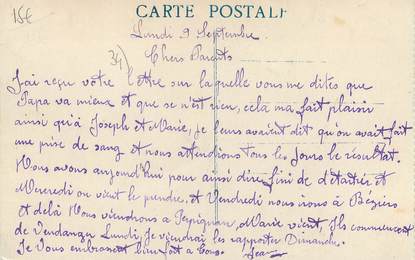 15€
CARTE POSTALE
34)
Lundi 9 Septembre
Chers Parents
J'ai reçu votre lettre sur laquelle vous me dites que
Papa va mieux et que se n'est rien, celà ma fait plaisir
ainsi qu'à Joseph et Marie, je leurs avaient dit qu'on avait fait
une prise de sang et nous attendions tous les jours le résultat.
Nous avons aujourd'hui pour ainsi dire fini de
Mercredi on vient le prendre, et Vendredi nous irons à Beziers
et delà Nous viendrons à Perpignan, Marie vient, Ils commencent
de Vendanger Lundi, je viendrai les rapporter Dimanche.
Je Vous embrassent bien fort à tous. Jean